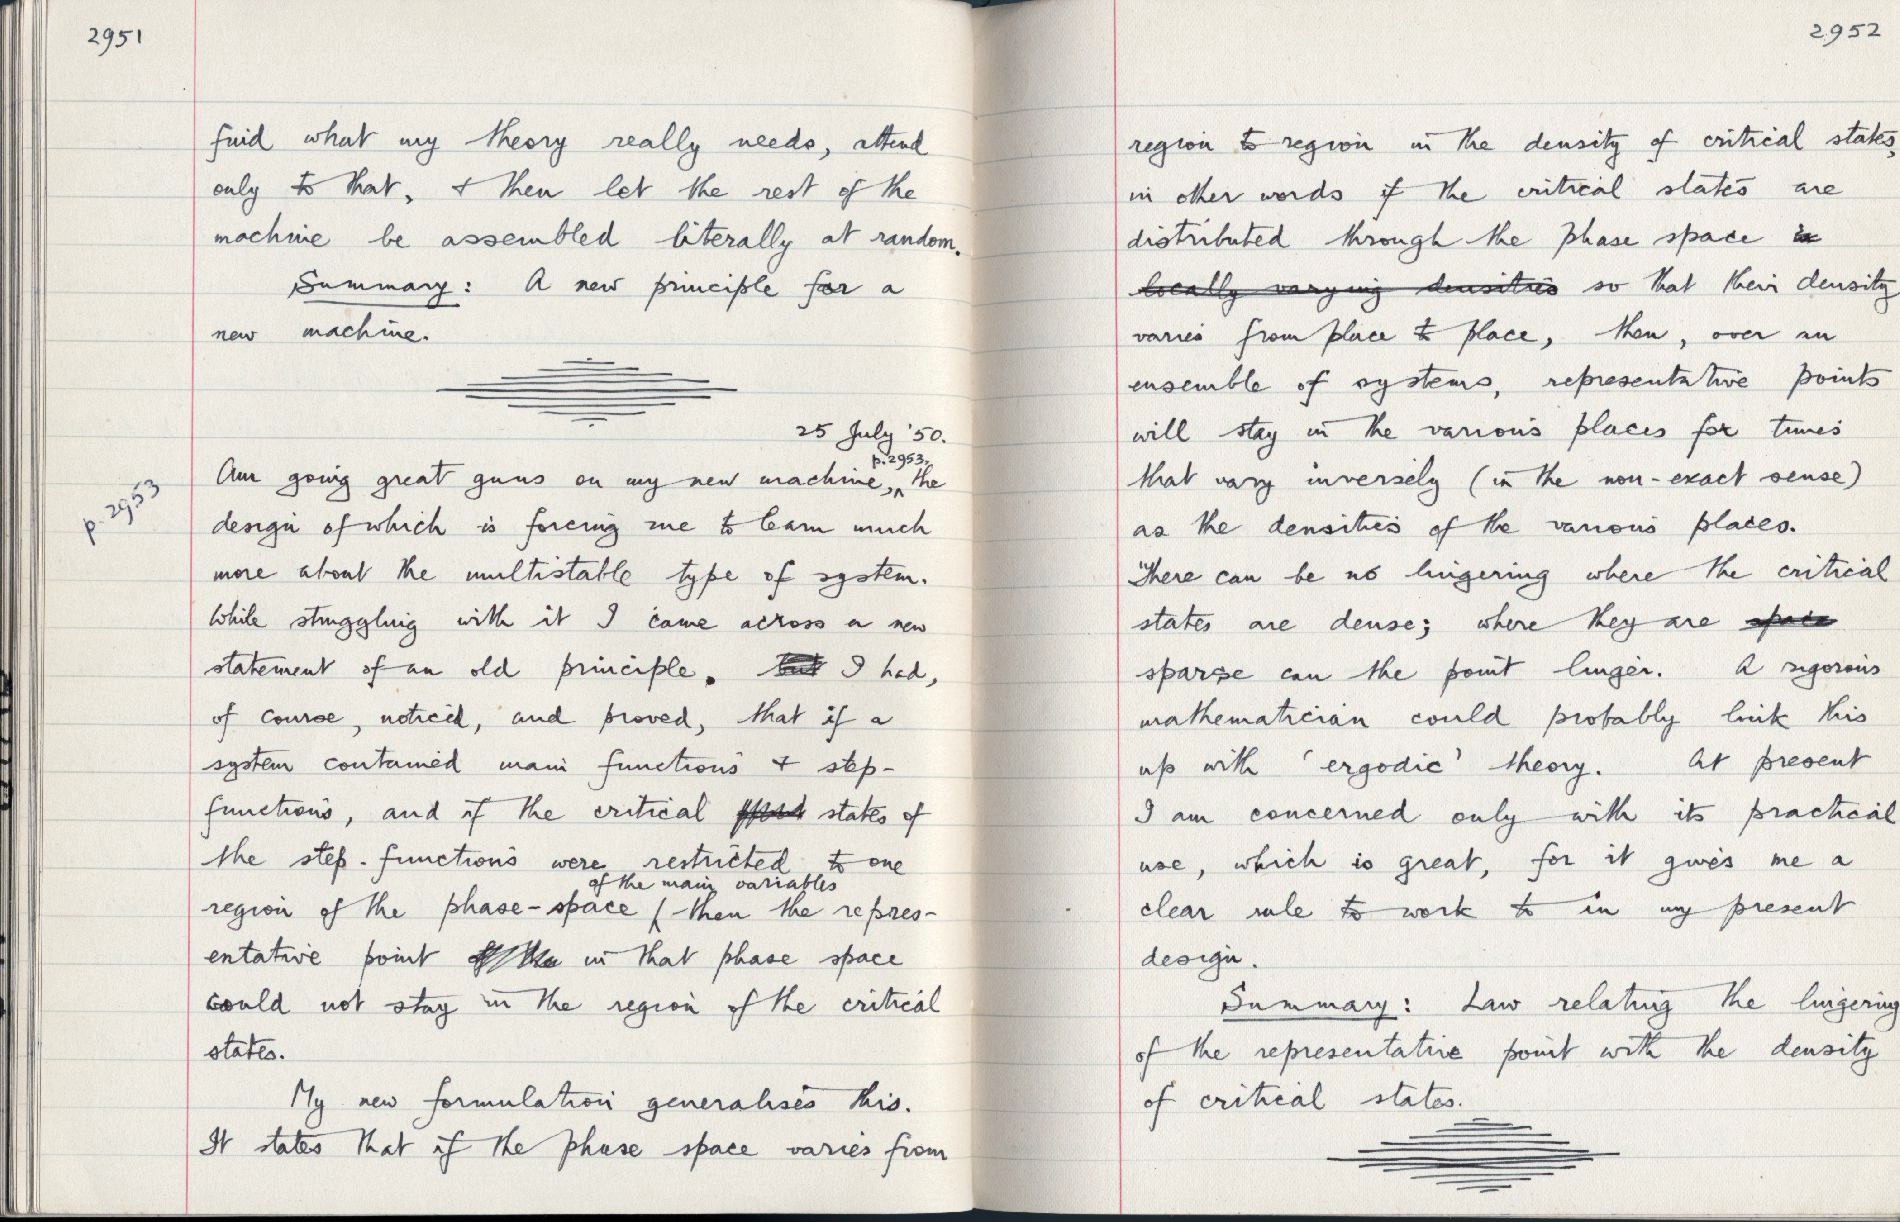 2951
find what my theory really needs, attend
only to that, & then let the rest of the
machine be assembled literally at random.
Summary: A new principle for a
new machine.
25 July '50.
p. 2953.
Am going great guns on my new machine, the
p. 2953
design of which is forcing me to learn much
more about the multistable type of system.
While struggling with it I came across a new
statement of an old principle. but I had,
of course, noticed, and proved, that if a
system contained main functions & step-
functions, and if the critical states of
the step-functions were restricted to one
of the main variables
region of the phase-space / then the repres-
entative point of the in that phase space
could not stay in the region of the critical
states.
My new formulation generalises this.
It states that if the phase space varies from
2952
region to region in the density of critical states,
in other words if the critical states are
distributed through the phase space in
locally varying densities so that their density
varies from place to place, then, over an
ensemble of systems, representative points
will stay in the various places for times
that vary inversely (in the non-exact sense)
as the densities of the various places.
There can be no lingering where the critical
states are dense; where they are space
sparse can the point linger. A rigorous
mathematician could probably link this
up with 'ergodic' theory. At present
I am concerned only with its practical
use, which is great, for it gives me a
clear rule to work to in my present
design.
Summary: Law relating the lingering
of the representative point with the density
of critical states.